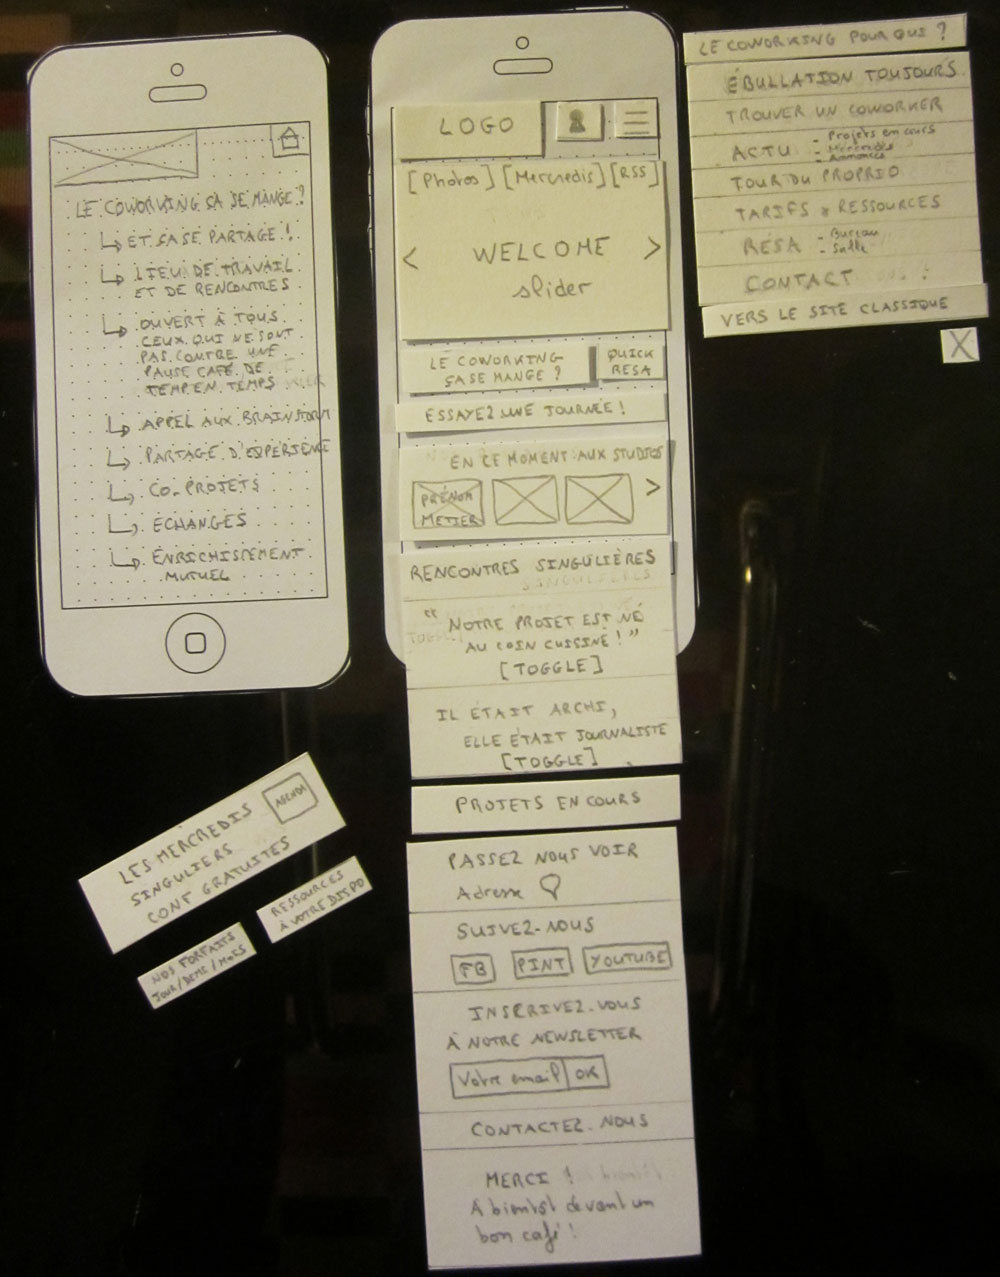 LE COWORKING ÇA SE MANGE ?
ET ÇA SE PARTAGE !
LIEU DE TRAVAIL
ET DE RENCONTRES
OUVERT À TOUS
CEUX QUI NE SONT
PAS CONTRE UNE
PAUSE CAFÉ DE
TEMP EN TEMPS
APPEL AUX BRAINSTORM
PARTAGE D'EXPÉRIENCE
CO-PROJETS
ÉCHANGES
ENRICHISSEMENT
MUTUEL
LOGO
[Photos] [Mercredis] [RSS]
< WELCOME >
slider
LE COWORKING
ÇA SE MANGE ?
QUICK
RESA
ESSAYEZ UNE JOURNÉE !
EN CE MOMENT AUX STUDIOS
PRÉNOM
METIER
>
RENCONTRES SINGULIÈRES
“ NOTRE PROJET EST NÉ
AU COIN CUISINE ! ”
[TOGGLE]
IL ÉTAIT ARCHI,
ELLE ÉTAIT JOURNALISTE
[TOGGLE]
PROJETS EN COURS
PASSEZ NOUS VOIR
Adresse
SUIVEZ-NOUS
FB PINT YOUTUBE
INSCRIVEZ-VOUS
À NOTRE NEWSLETTER
Votre email OK
CONTACTEZ-NOUS
MERCI !
A bientôt devant un
bon café !
LE COWORKING POUR QUI ?
ÉBULLATION TOUJOURS
TROUVER UN COWORKER
ACTU
- Projets en cours
- Mercredis
- Annonces
TOUR DU PROPRIO
TARIFS & RESSOURCES
RÉSA
- Bureau
- Salle
CONTACT
VERS LE SITE CLASSIQUE
X
LES MERCREDIS
SINGULIERS
CONT GRATUITES
AGENDA
RESSOURCES
À VOTRE DISPO
NOS FORFAITS
JOUR/DEMI/MOIS